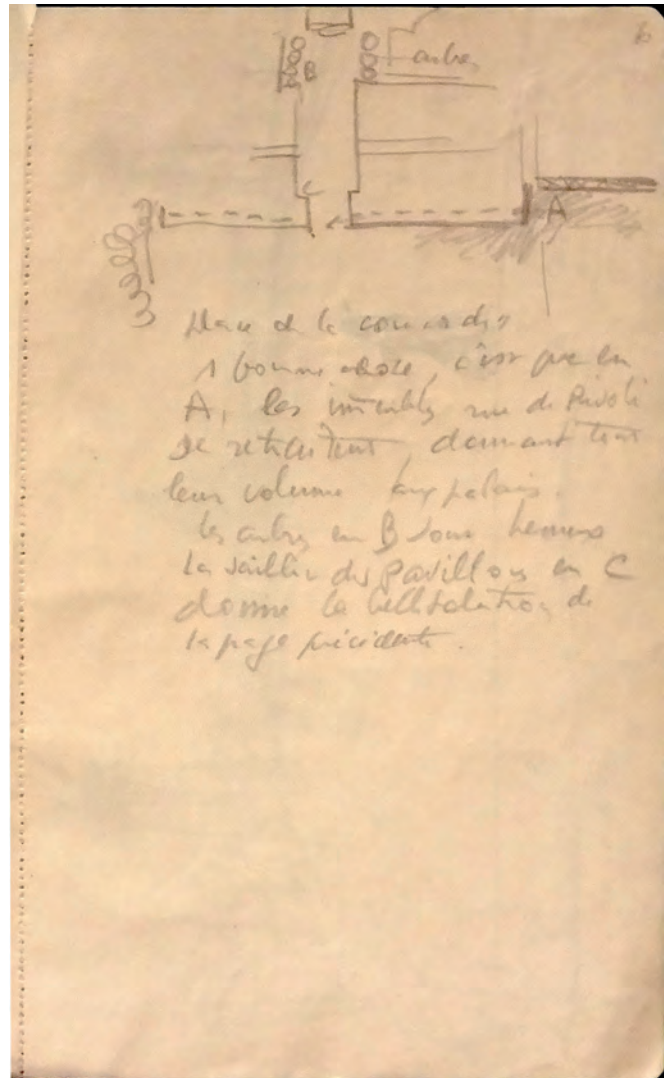 6
arbres
B
C
A
Place de la concorde
1 bonne chose, c'est que en
A, les immeubles rue de Rivoli
se retraitent, donnant tout
leur volume aux palais.
les arbres en B sont
La saillie des pavillons en C
donne la belle solution de
la page précédente.